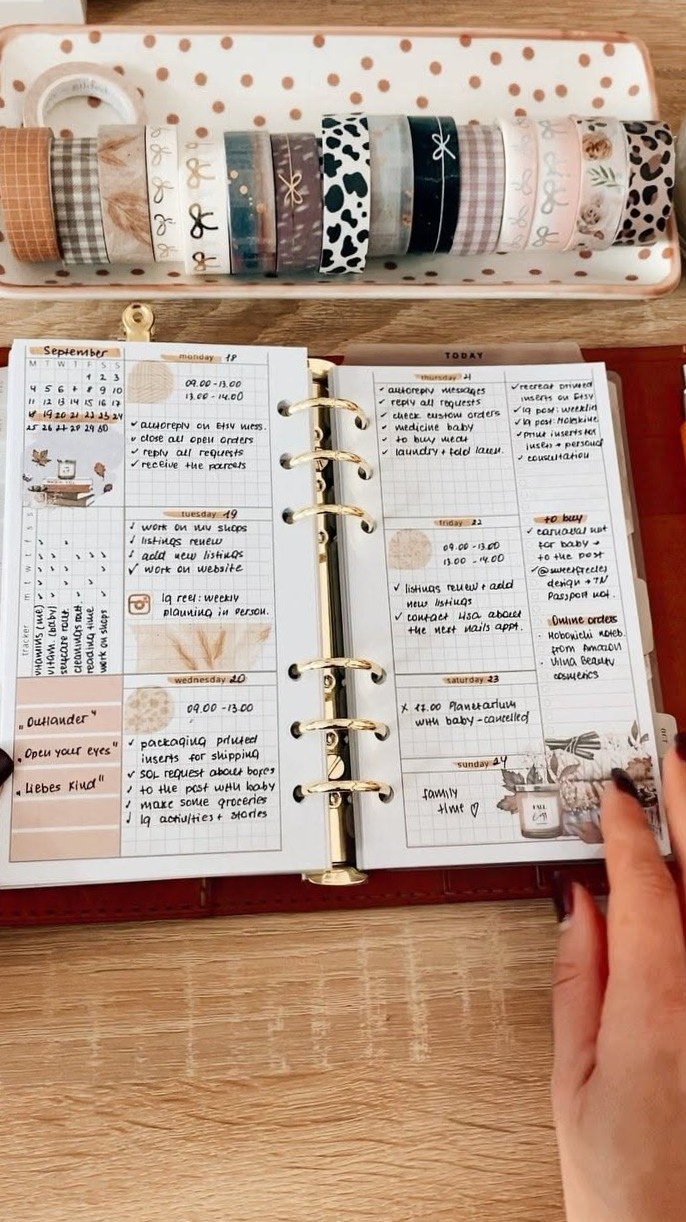 September
M T W T F S S
1 2 3
4 5 6 7 8 9 10
11 12 13 14 15 16 17
18 19 20 21 22 23 24
25 26 27 28 29 30
tracker
m t w t f s s
vitamins (me)
vitam. (baby)
skycare rout.
cleaning rout.
reading time
work on shops
"Outlander"
"Open your eyes"
"Liebes Kind"
monday 18
09.00 - 13.00
13.00 - 14.00
✓ autoreply on Etsy mess.
✓ close all open orders
✓ reply all requests
✓ receive the parcels
tuesday 19
✓ work on my shops
✓ listings renew
✓ add new listings
✓ work on website
Ig reel: weekly
planning in person.
wednesday 20
09.00 - 13.00
✓ packaging printed
inserts for shipping
✓ SOL request about boxes
✓ to the post with baby
✓ make some groceries
✓ Ig activities + stories
TODAY
thursday 21
✓ autoreply messages
✓ reply all requests
✓ check custom orders
✓ medicine baby
✓ to buy meat
✓ laundry + fold laun.
✓ recreat printed
inserts on Etsy
✓ Ig post: weekly
✓ Ig post: Moleskine
✓ print inserts for
+ personal
✓ consultation
friday 22
09.00 - 13.00
13.00 - 14.00
✓ listings renew + add
new listings
✓ contact Lisa about
the next nails appt.
to buy
✓ carnaval
for baby →
to the post
design + TN
Passport not.
Online orders
· Hobonichi noteb.
from Amazon
· Ulina Beauty
cosmetics
saturday 23
x 17.00 Planetarium
with baby - cancelled
sunday 24
family
time ♡
FALL
OCT